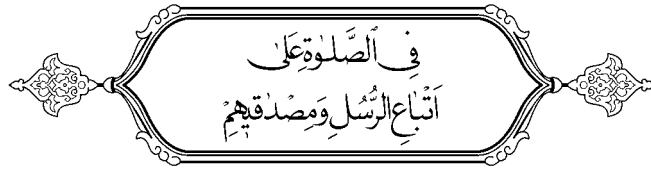 فِي ٱلصَّلٰوةِ عَلىٰ
اَتْبٰاعِ الرُّسُلِ وَمِصْدٰقيٖهِمْ